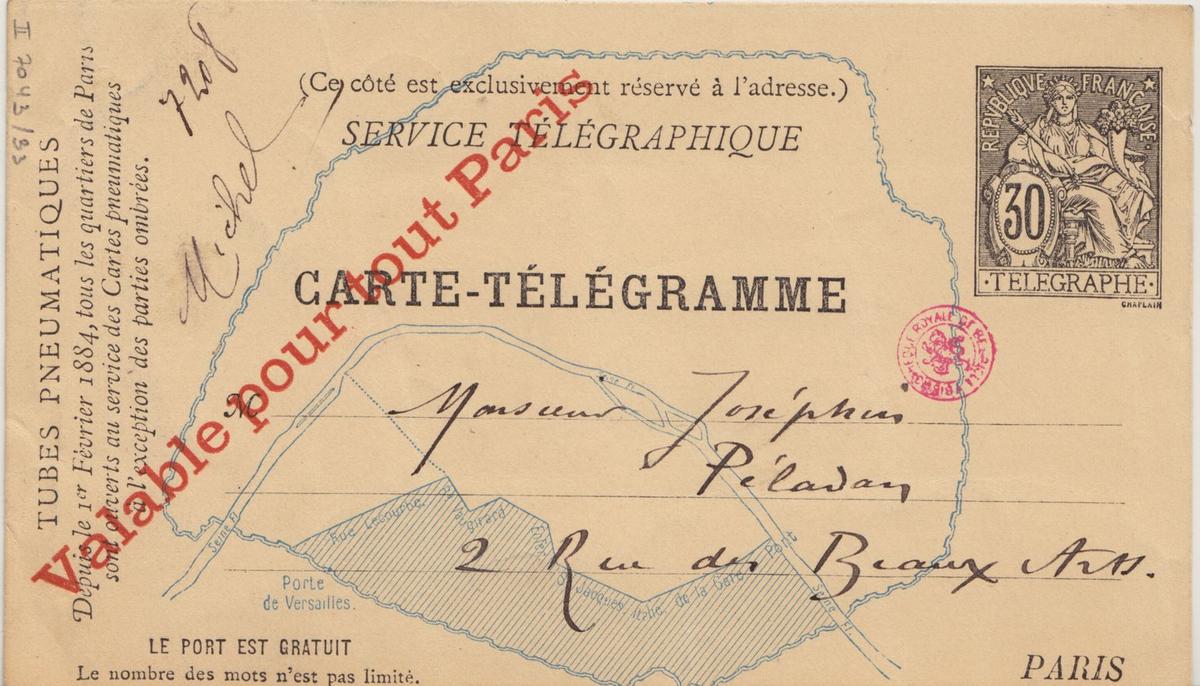 II 7043/93
TUBES PNEUMATIQUES
Depuis le 1er Février 1884, tous les quartiers de Paris
sont ouverts au service des Cartes pneumatiques
à l'exception des parties ombrées.
7208
Michel
(Ce côté est exclusivement réservé à l'adresse.)
SERVICE TÉLÉGRAPHIQUE
CARTE-TÉLÉGRAMME
Valable pour tout Paris
REPUBLIQUE FRANÇAISE
30
TELEGRAPHE
CHAPLAIN
M
Monsieur Joséphin
Péladan
2 Rue des Beaux Arts.
Seine Fl.
Rue Lecourbe
Port
Seine Fl.
St Jacques Italie de la Gare
Porte
de Versailles.
LE PORT EST GRATUIT
Le nombre des mots n'est pas limité.
PARIS